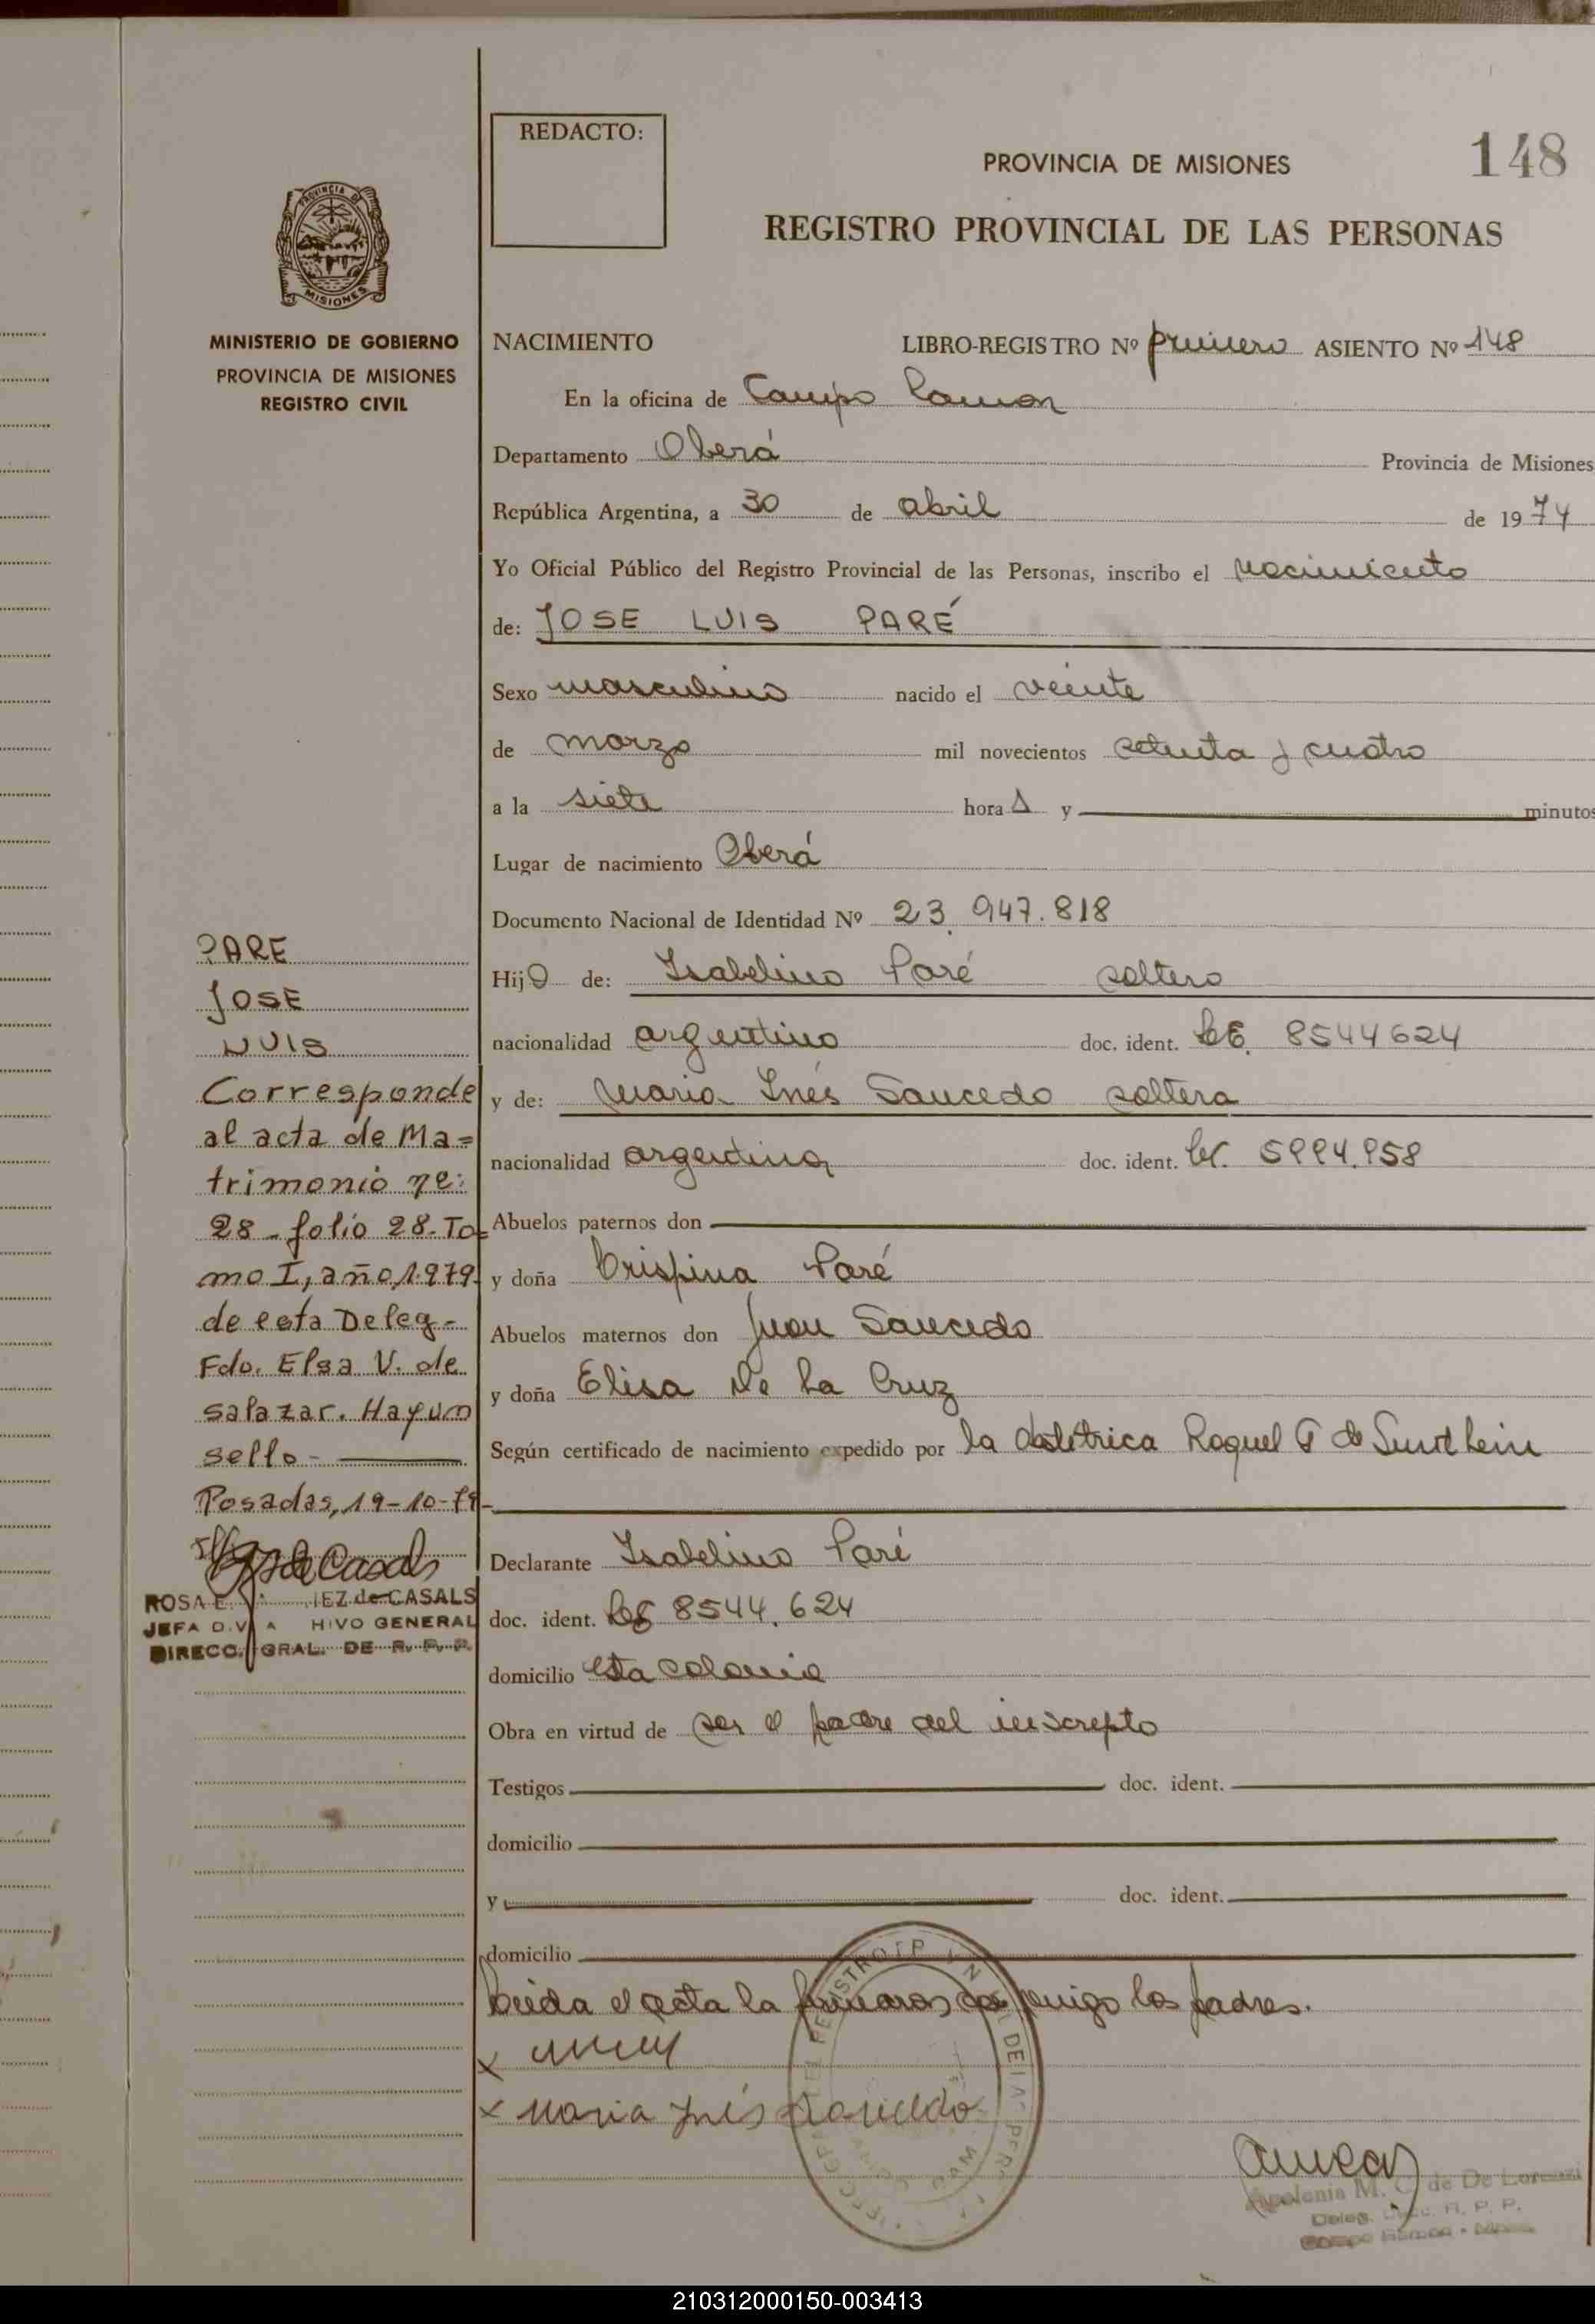 REDACTO:
PROVINCIA DE MISIONES
148
REGISTRO PROVINCIAL DE LAS PERSONAS
PROVINCIA DE
MISIONES
MINISTERIO DE GOBIERNO
PROVINCIA DE MISIONES
REGISTRO CIVIL
NACIMIENTO LIBRO-REGISTRO Nº primero ASIENTO Nº 148
En la oficina de Campo Ramon
Departamento Oberá Provincia de Misiones
República Argentina, a 30 de abril de 1974
Yo Oficial Público del Registro Provincial de las Personas, inscribo el nacimiento
de: JOSE LUIS PARÉ
Sexo masculino nacido el veinte
de marzo mil novecientos setenta y cuatro
a la siete hora s y minutos
Lugar de nacimiento Oberá
Documento Nacional de Identidad Nº 23.947.818
Hijo de: Isabelino Paré soltero
nacionalidad argentino doc. ident. LE. 8544624
y de: Maria Inés Saucedo soltera
nacionalidad argentina doc. ident.
Abuelos paternos don
y doña Crispina Paré
Abuelos maternos don Juan Saucedo
y doña Elisa De La Cruz
Según certificado de nacimiento expedido por la obstétrica Raquel G de
Declarante Isabelino Paré
doc. ident. LE 8544.624
domicilio esta colonia
Obra en virtud de ser el padre del inscripto
Testigos doc. ident.
domicilio
y doc. ident.
domicilio
Leida el acta la firmaron conmigo los padres.
x
x Maria Inés Saucedo
PARE
JOSE
LUIS
Corresponde
al acta de Ma=
trimonio nº:
28 - folio 28. To-
mo I, año 1.979.
de esta Deleg-
Fdo. Elsa V. de
Salazar. Hay un
sello -
Posadas, 19-10-79-
ROSA E. de CASALS
JEFA DIV. GENERAL
DIRECC. GRAL. DE R. P. P.
Apolonia M. C. de De Lorenzi
Deleg. R. P. P.
Campo Ramon - Mnes.
210312000150-003413